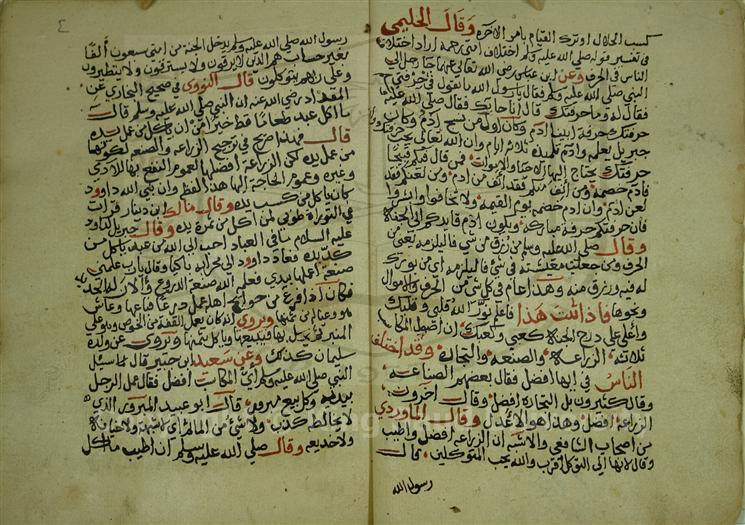 كسب الحلال او ترك القيام بامر الاخرة وقال الحليمي
في تفسير قوله صلى الله عليه وسلم اختلاف امتي رحمة اراد اختلاف
الناس في الحرف وعن ابن عباس رضي الله تعالى عنهما جا رجل الى
النبي صلى الله عليه وسلم فقال يا رسول الله ما تقول في حرفتي
فقال له وما حرفتك قال انا حايك فقال صلى الله عليه
حرفتك حرفة ابينا ادم وكان اول من نسج ادم وكان
جبريل يعلمه وادم تلميذه ثلاثة ايام وان الله تعالى يحب حرفتك وان
حرفتك يحتاج اليها الاحيا والاموات فمن قال فيكم قبيحا
فادم خصمه ومن انف منكم فقد انف من ادم ومن لعنكم فقد
لعن ادم وان ادم خصمه يوم القيمة ولا تخافوا وابشروا
فان حرفتكم حرفة مباركة ويكون ادم قايدكم الى الجنة
وقال صلى الله عليه وسلم من رزق من شي فاليلزمه يعني من
الحرف ومن جعلت معيشته في شي فاليلزمه اي من بورك
له فيه ورزق منه وهذا عام في كل شي من الحرف والاموال
ونحوها فاذا ثبت هذا فاعلم نور الله قلبي وقلبك
واعلى على درج الجنة كعبي وكعبك ان اصول المكاسب
ثلاثة الزراعة والصنعة والتجارة وقد اختلف
الناس في ايها افضل فقال بعضهم الصناعة
وقال كثيرون بل التجارة افضل وقال اخرون
الزراعة افضل وهذا هو الاعدل وقال الماوردي
من اصحاب الشافعي والاشبه ان الزراعة افضل واطيب
وقال لانها الى التوكل اقرب والله يحب المتوكلين قال
رسول الله
٤
رسول الله صلى الله عليه وسلم يدخل الجنة من امتي سبعون الفا
بغير حساب هم الذين لا يرقون ولا يسترقون ولا يتطيرون
وعلى ربهم يتوكلون قال النووي في صحيح البخاري عن
المقداد رضي الله عنه ان النبي صلى الله عليه وسلم قال
ما اكل عبد طعاما قط خير من ان ياكل من عمل يده
قال فهذا صريح في ترجيح الزراعة والصنعة لكونها
من عمل يده لكن الزراعة افضلها لعموم النفع بها للادمي
وغيره وعموم الحاجة اليها هذا لفظه وان نبي الله داوود
كان ياكل من كسب يده وقال مالك ابن دينار قرات
في التوراة طوبى لمن اكل من ثمرة يده وقال جبريل لداود
عليه السلام ما في العباد احب الى الله من عبد ياكل من
كد يده فعاد داوود الى محرابه باكيا وقال يا رب علمني
صنعة اعملها بيدي فعلمه الله صنعة الدروع والان له الحديد
فكان اذا فرغ من حوايج اهله عمل درعا فباعها وعاش
هو وعياله من ثمنها ويروى انه كان يعمل القفة من الخوص وهو على
المنبر ثم يرسل بها فيبيعها وياكل ثمنها ويروى عن ولده
سليمان كذلك وعن سعيد ابن جبير قال سيل
النبي صلى الله عليه وسلم اي المكاسب افضل فقال عمل الرجل
بيده وكل بيع مبرور قال ابو عبيد المبرور الذي
لا يخالطه كذب ولا شي من الماثم اي لا شبهة ولا خيانة
ولا خديعة وقال صلى الله عليه وسلم ان اطيب ما اكل